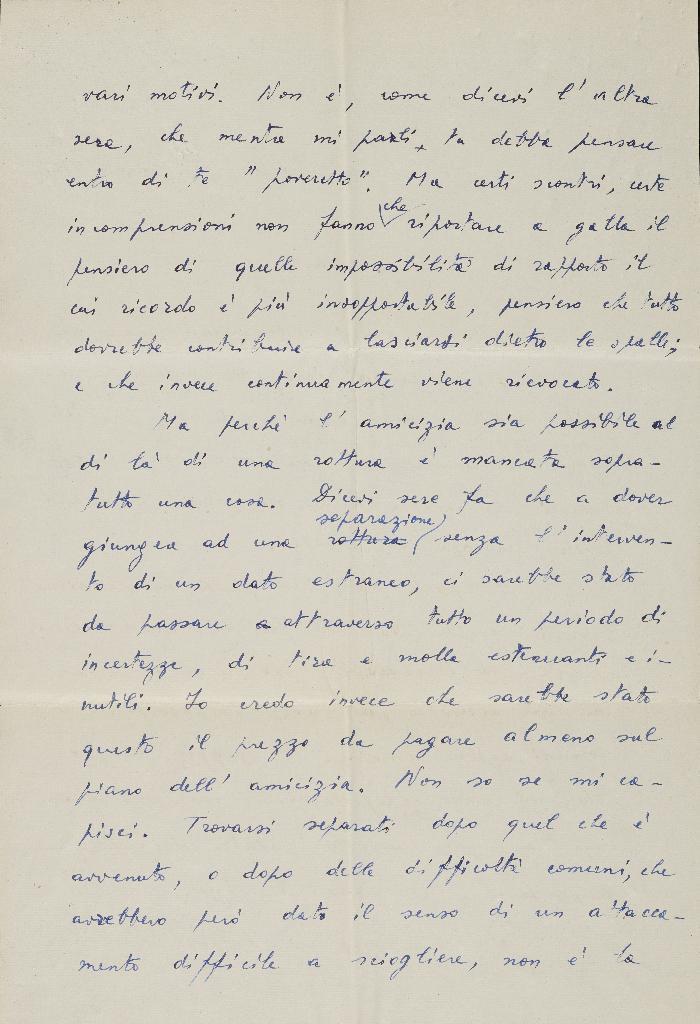 vari motivi. Non è, come dicevi l'altra
sera, che mentre mi parli, tu debba pensare
entro di te "poveretto". Ma certi scontri, certe
incomprensioni non fanno che riportare a galla il
pensiero di quelle impossibilità di rapporto il
cui ricordo è più insopportabile, pensiero che tutto
dovrebbe contribuire a lasciarsi dietro le spalle;
e che invece continuamente viene rievocato.
Ma perché l'amicizia sia possibile al
di là di una rottura è mancata sopra-
tutto una cosa. Dicevi sere fa che a dover
separazione
giungere ad una rottura senza l'interven-
to di un dato estraneo, ci sarebbe stato
da passare attraverso tutto un periodo di
incertezze, di tira e molla estenuanti e i-
nutili. Io credo invece che sarebbe stato
questo il prezzo da pagare almeno sul
piano dell'amicizia. Non so se mi ca-
pisci. Trovarsi separati dopo quel che è
avvenuto, o dopo delle difficoltà comuni, che
avrebbero però dato il senso di un attacca-
mento difficile a sciogliere, non è la